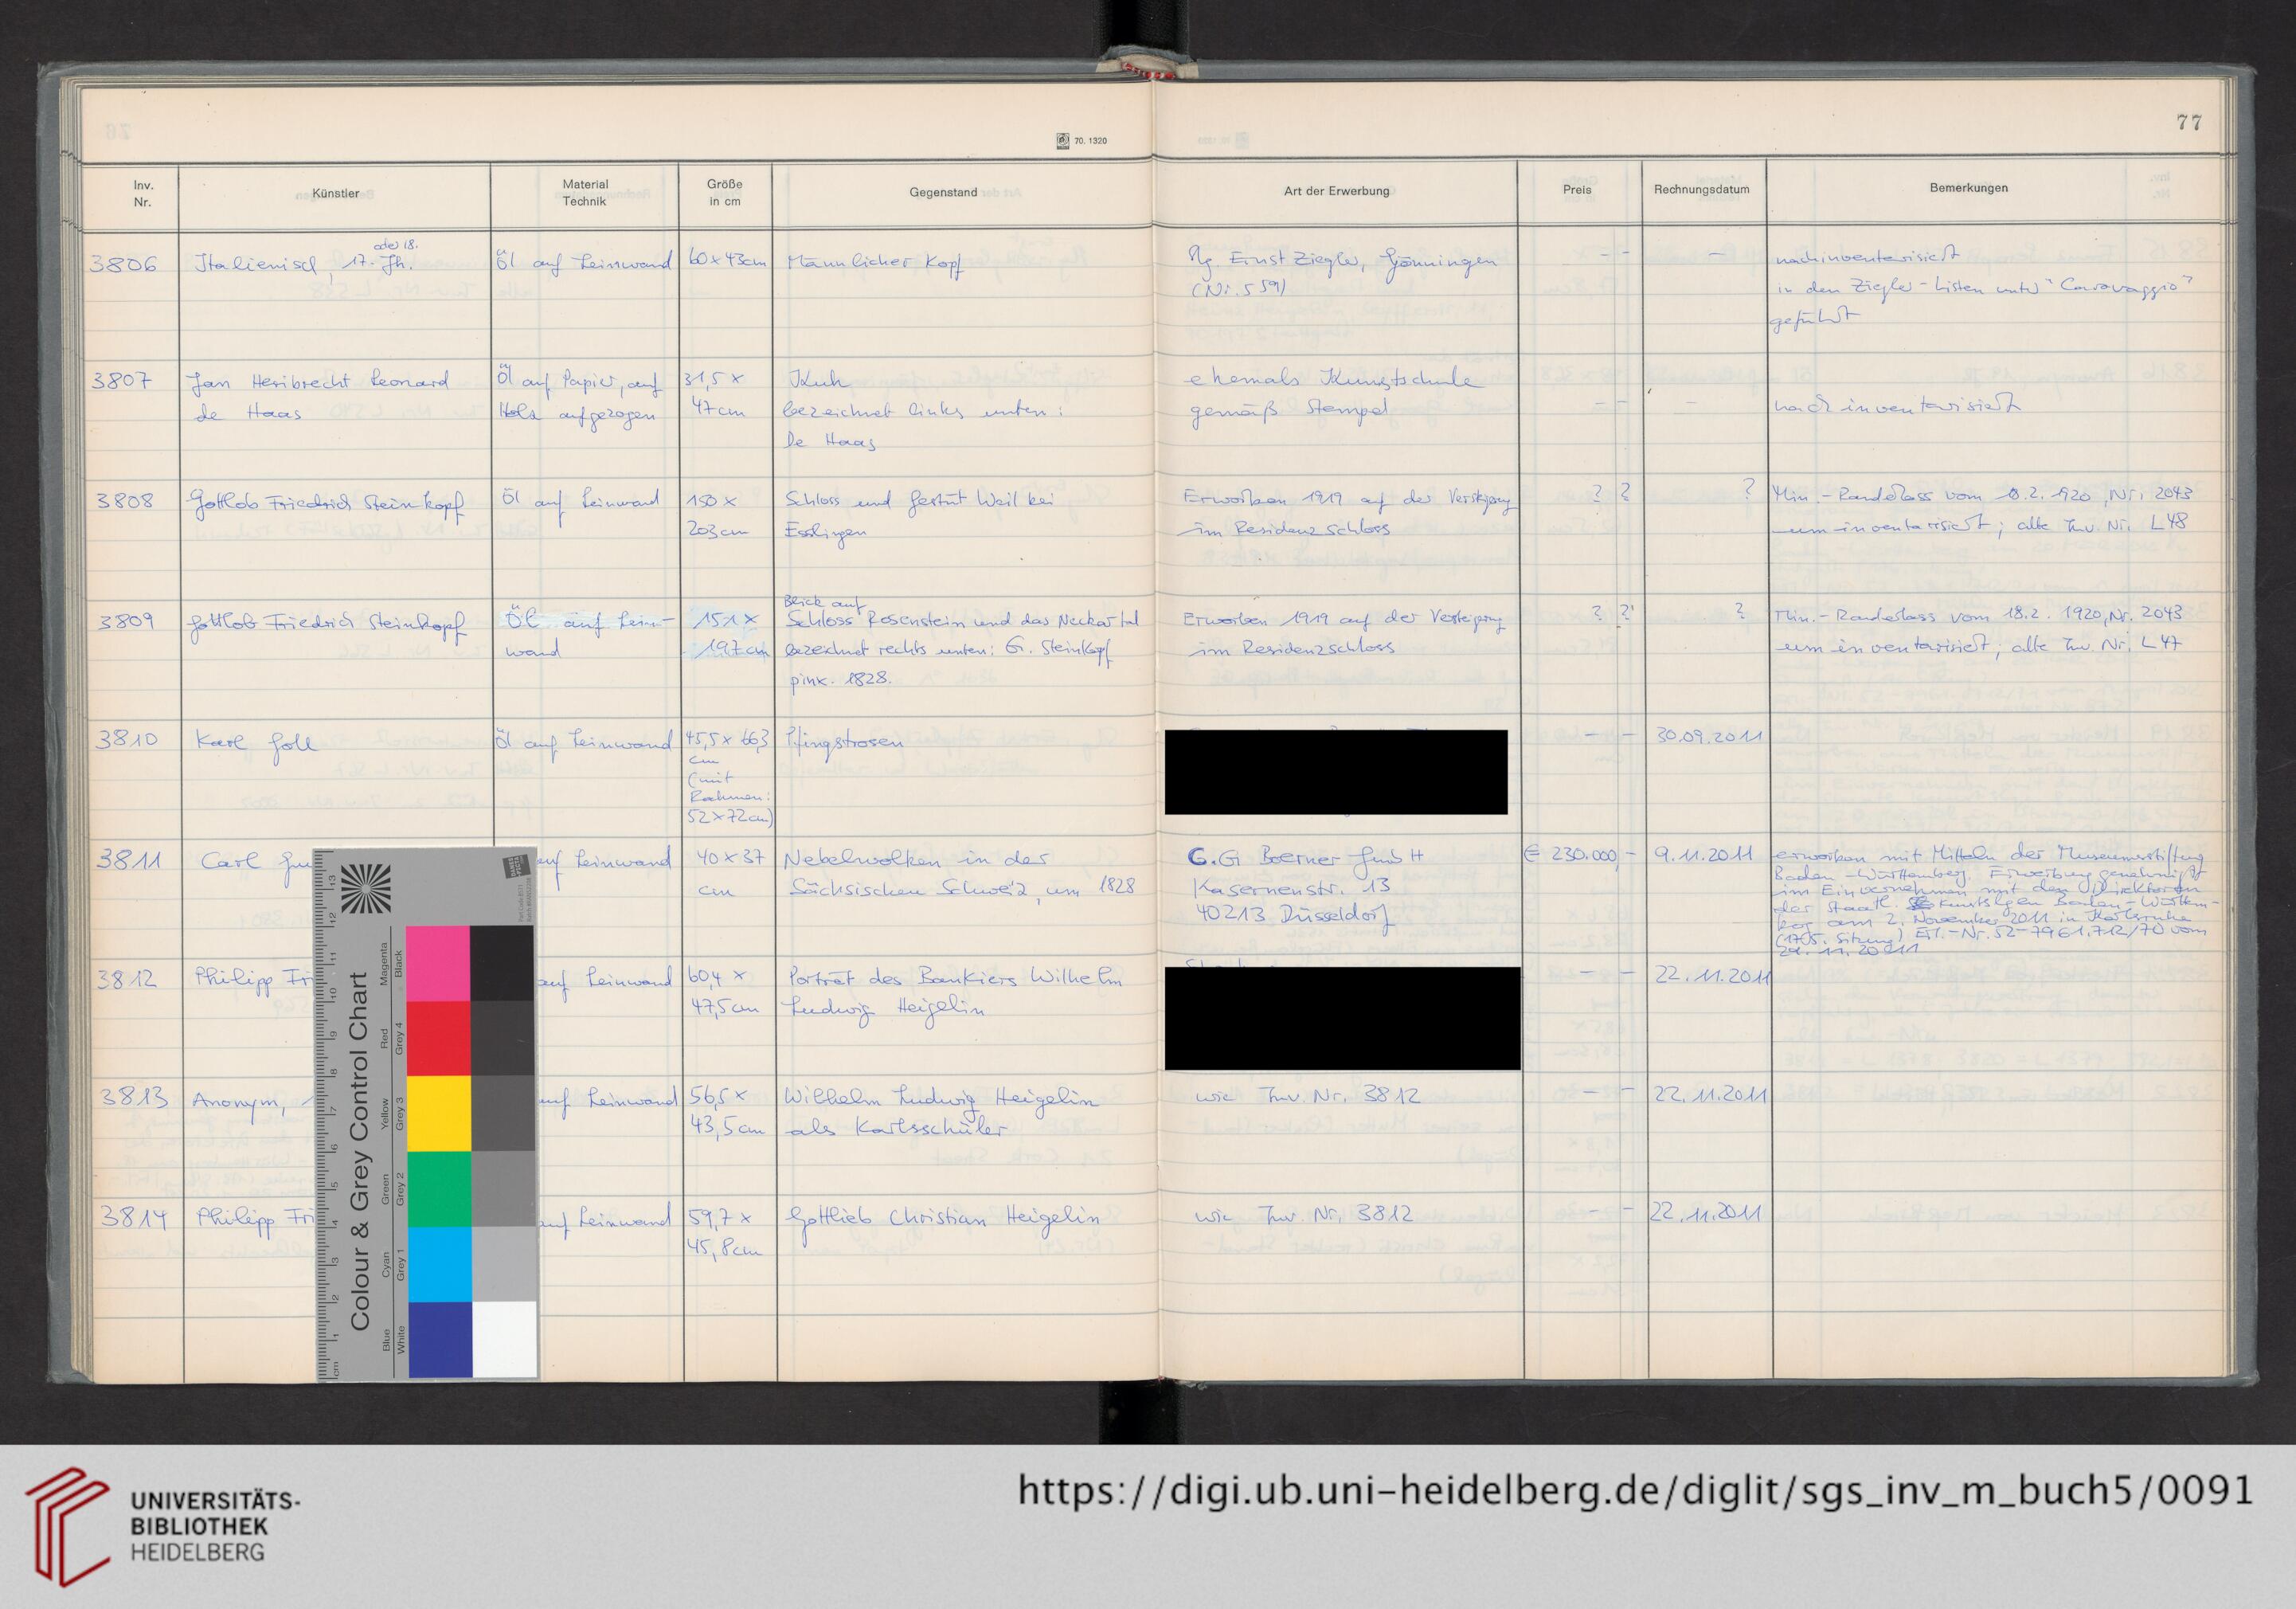 77
70. 1320
Inv. Nr.
Künstler
Material Technik
Größe in cm
Gegenstand
Art der Erwerbung
Preis
Rechnungsdatum
Bemerkungen
3806
Italienisch, 17. oder 18. Jh.
Öl auf Leinwand
60 x 43cm
Männlicher Kopf
Slg. Ernst Ziegler, Gönningen
(Nr. 559)
- -
-
nachinventarisiert
in den Ziegler-Listen unter "Caravaggio"
geführt
3807
Jan Heribrecht Leonard
de Haas
Öl auf Papier, auf
Holz aufgezogen
31,5 x
47cm
Kuh
bezeichnet links unten:
De Haas
ehemals Kunstschule
gemäß Stempel
- -
-
nachinventarisiert
3808
Gottlob Friedrich Steinkopf
Öl auf Leinwand
150 x
203cm
Schloss und Gestüt Weil bei
Esslingen
Erworben 1919 auf der Versteigerung
im Residenzschloss
? ?
?
Min.-Randerlass vom 18.2.1920, Nr. 2043
uminventarisiert; alte Inv. Nr. L48
3809
Gottlob Friedrich Steinkopf
Öl auf Lein-
wand
151 x
197cm
Blick auf
Schloss Rosenstein und das Neckartal
bezeichnet rechts unten: G. Steinkopf
pinx. 1828.
Erworben 1919 auf der Versteigerung
im Residenzschloss
? ?
?
Min.-Randerlass vom 18.2.1920, Nr. 2043
uminventarisiert; alte Inv. Nr. L47
3810
Karl Goll
Öl auf Leinwand
45,5 x 66,3
cm
(mit
Rahmen:
52 x 72cm)
Pfingstrosen
- -
30.09.2011
3811
Carl Gu
auf Leinwand
40 x 37
cm
Nebelwolken in der
Sächsischen Schweiz, um 1828
C.G Boerner GmbH
Kasernenstr. 13
40213 Düsseldorf
€ 230.000,-
9.11.2011
erworben mit Mitteln der Museumsstiftung
Baden-Württemberg. Erwerbung genehmigt
im Einvernehmen mit den Direktoren
der Staatl. Kunstslgen Baden-Württem-
berg am 2. November 2011 in Karlsruhe
(1705. Sitzung) Erl.-Nr. 52-7961.712/70 vom
11.2011
3812
Philipp Fri
auf Leinwand
60,4 x
47,5cm
Porträt des Bankiers Wilhelm
Ludwig Heigelin
- -
22.11.2011
3813
Anonym,
auf Leinwand
56,5 x
43,5cm
Wilhelm Ludwig Heigelin
als Karlsschüler
wie Inv. Nr. 3812
- -
22.11.2011
3814
Philipp Fri
auf Leinwand
59,7 x
45,8cm
Gottlieb Christian Heigelin
wie Inv. Nr. 3812
- -
22.11.2011
Colour & Grey Control Chart
Blue Cyan Green Yellow Red Magenta
White Grey 1 Grey 2 Grey 3 Grey 4 Black
cm 1 2 3 4 5 6 7 8 9 10 11 12 13
UNIVERSITÄTS-
BIBLIOTHEK
HEIDELBERG
https://digi.ub.uni-heidelberg.de/diglit/sgs_inv_m_buch5/0091